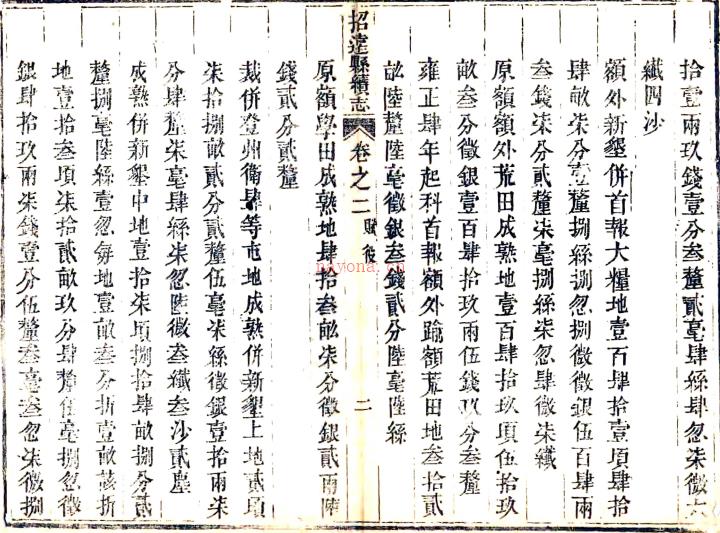 拾壹兩玖錢壹分叁釐貳毫肆絲肆忽柒微六
纖四沙
額外新墾併首報大糧地壹百肆拾壹項肆拾
肆畝柒分壹釐捌絲捌忽捌微徵銀伍百肆兩
叁錢柒分貳釐柒毫捌絲柒忽肆微柒纖
原額額外荒田成熟地壹百肆拾玖項伍拾玖
畝叁分徵銀壹百肆拾玖兩伍錢玖分叁釐
雍正肆年起科首報額外踰額荒田地叁拾貳
畝陸釐陸毫徵銀叁錢貳分陸毫陸絲
招遠縣續志
卷之二
賦役
二
原額學田成熟地肆拾叁畝柒分徵銀貳兩陸
錢貳分貳釐
裁併登州衛肆等屯地成熟併新墾上地貳項
柒拾捌畝貳分貳釐伍毫柒絲徵銀壹拾兩柒
分肆釐柒毫肆絲柒忽陸微叁纖叁沙貳塵
成熟併新墾中地壹拾柒項捌拾肆畝捌分貳
釐捌毫陸絲壹忽每地壹畝叁分折壹畝該折
地壹拾叁項柒拾貳畝玖分肆釐伍毫捌忽徵
銀肆拾玖兩柒錢壹分伍釐叁毫叁忽柒微捌
nayona.cn